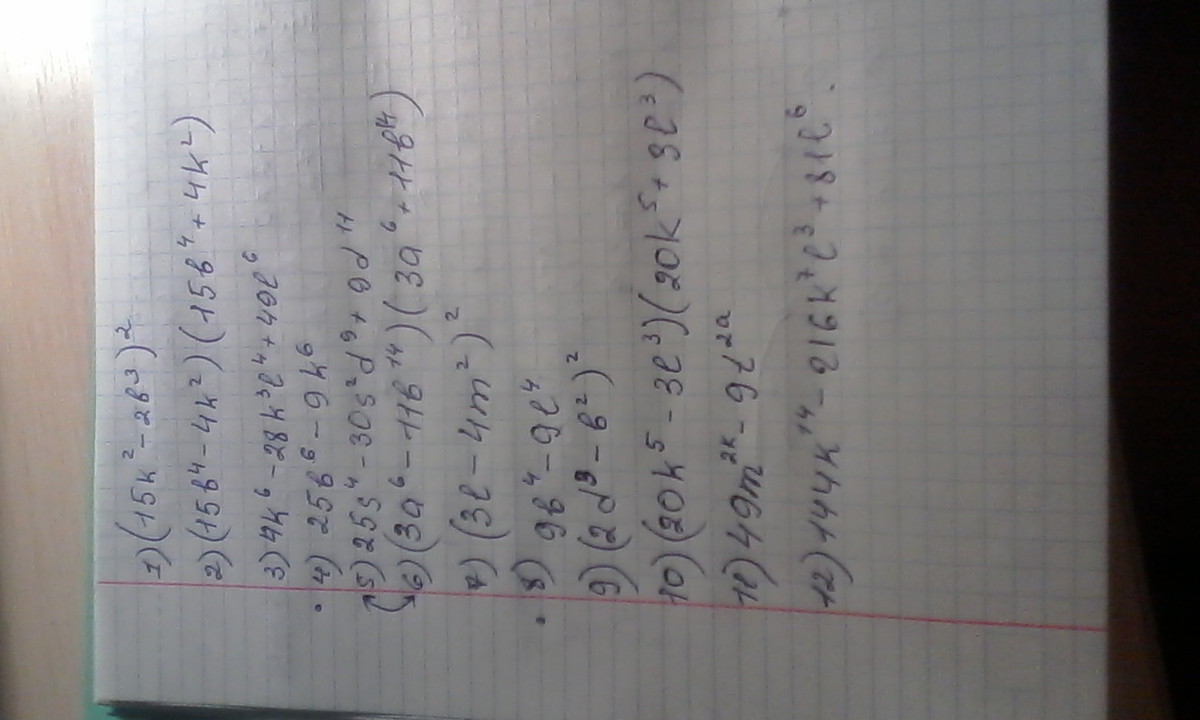 1) (15k² - 2b³)²
2) (15b⁴ - 4k²)(15b⁴ + 4k²)
3) 4k⁶ - 28k³l⁴ + 49l⁶
4) 25b⁶ - 9k⁶
5) 25s⁴ - 30s²d⁹ + 9d¹¹
6) (3a⁶ - 11b¹⁴)(3a⁶ + 11b¹⁴)
7) (3l - 4m²)²
8) 9b⁴ - 9l⁴
9) (2d⁹ - b²)²
10) (20k⁵ - 3l³)(20k⁵ + 3l³)
11) 49m²ᵏ - 9t²ᵃ
12) 144k¹⁴ - 216k⁷l³ + 81l⁶.